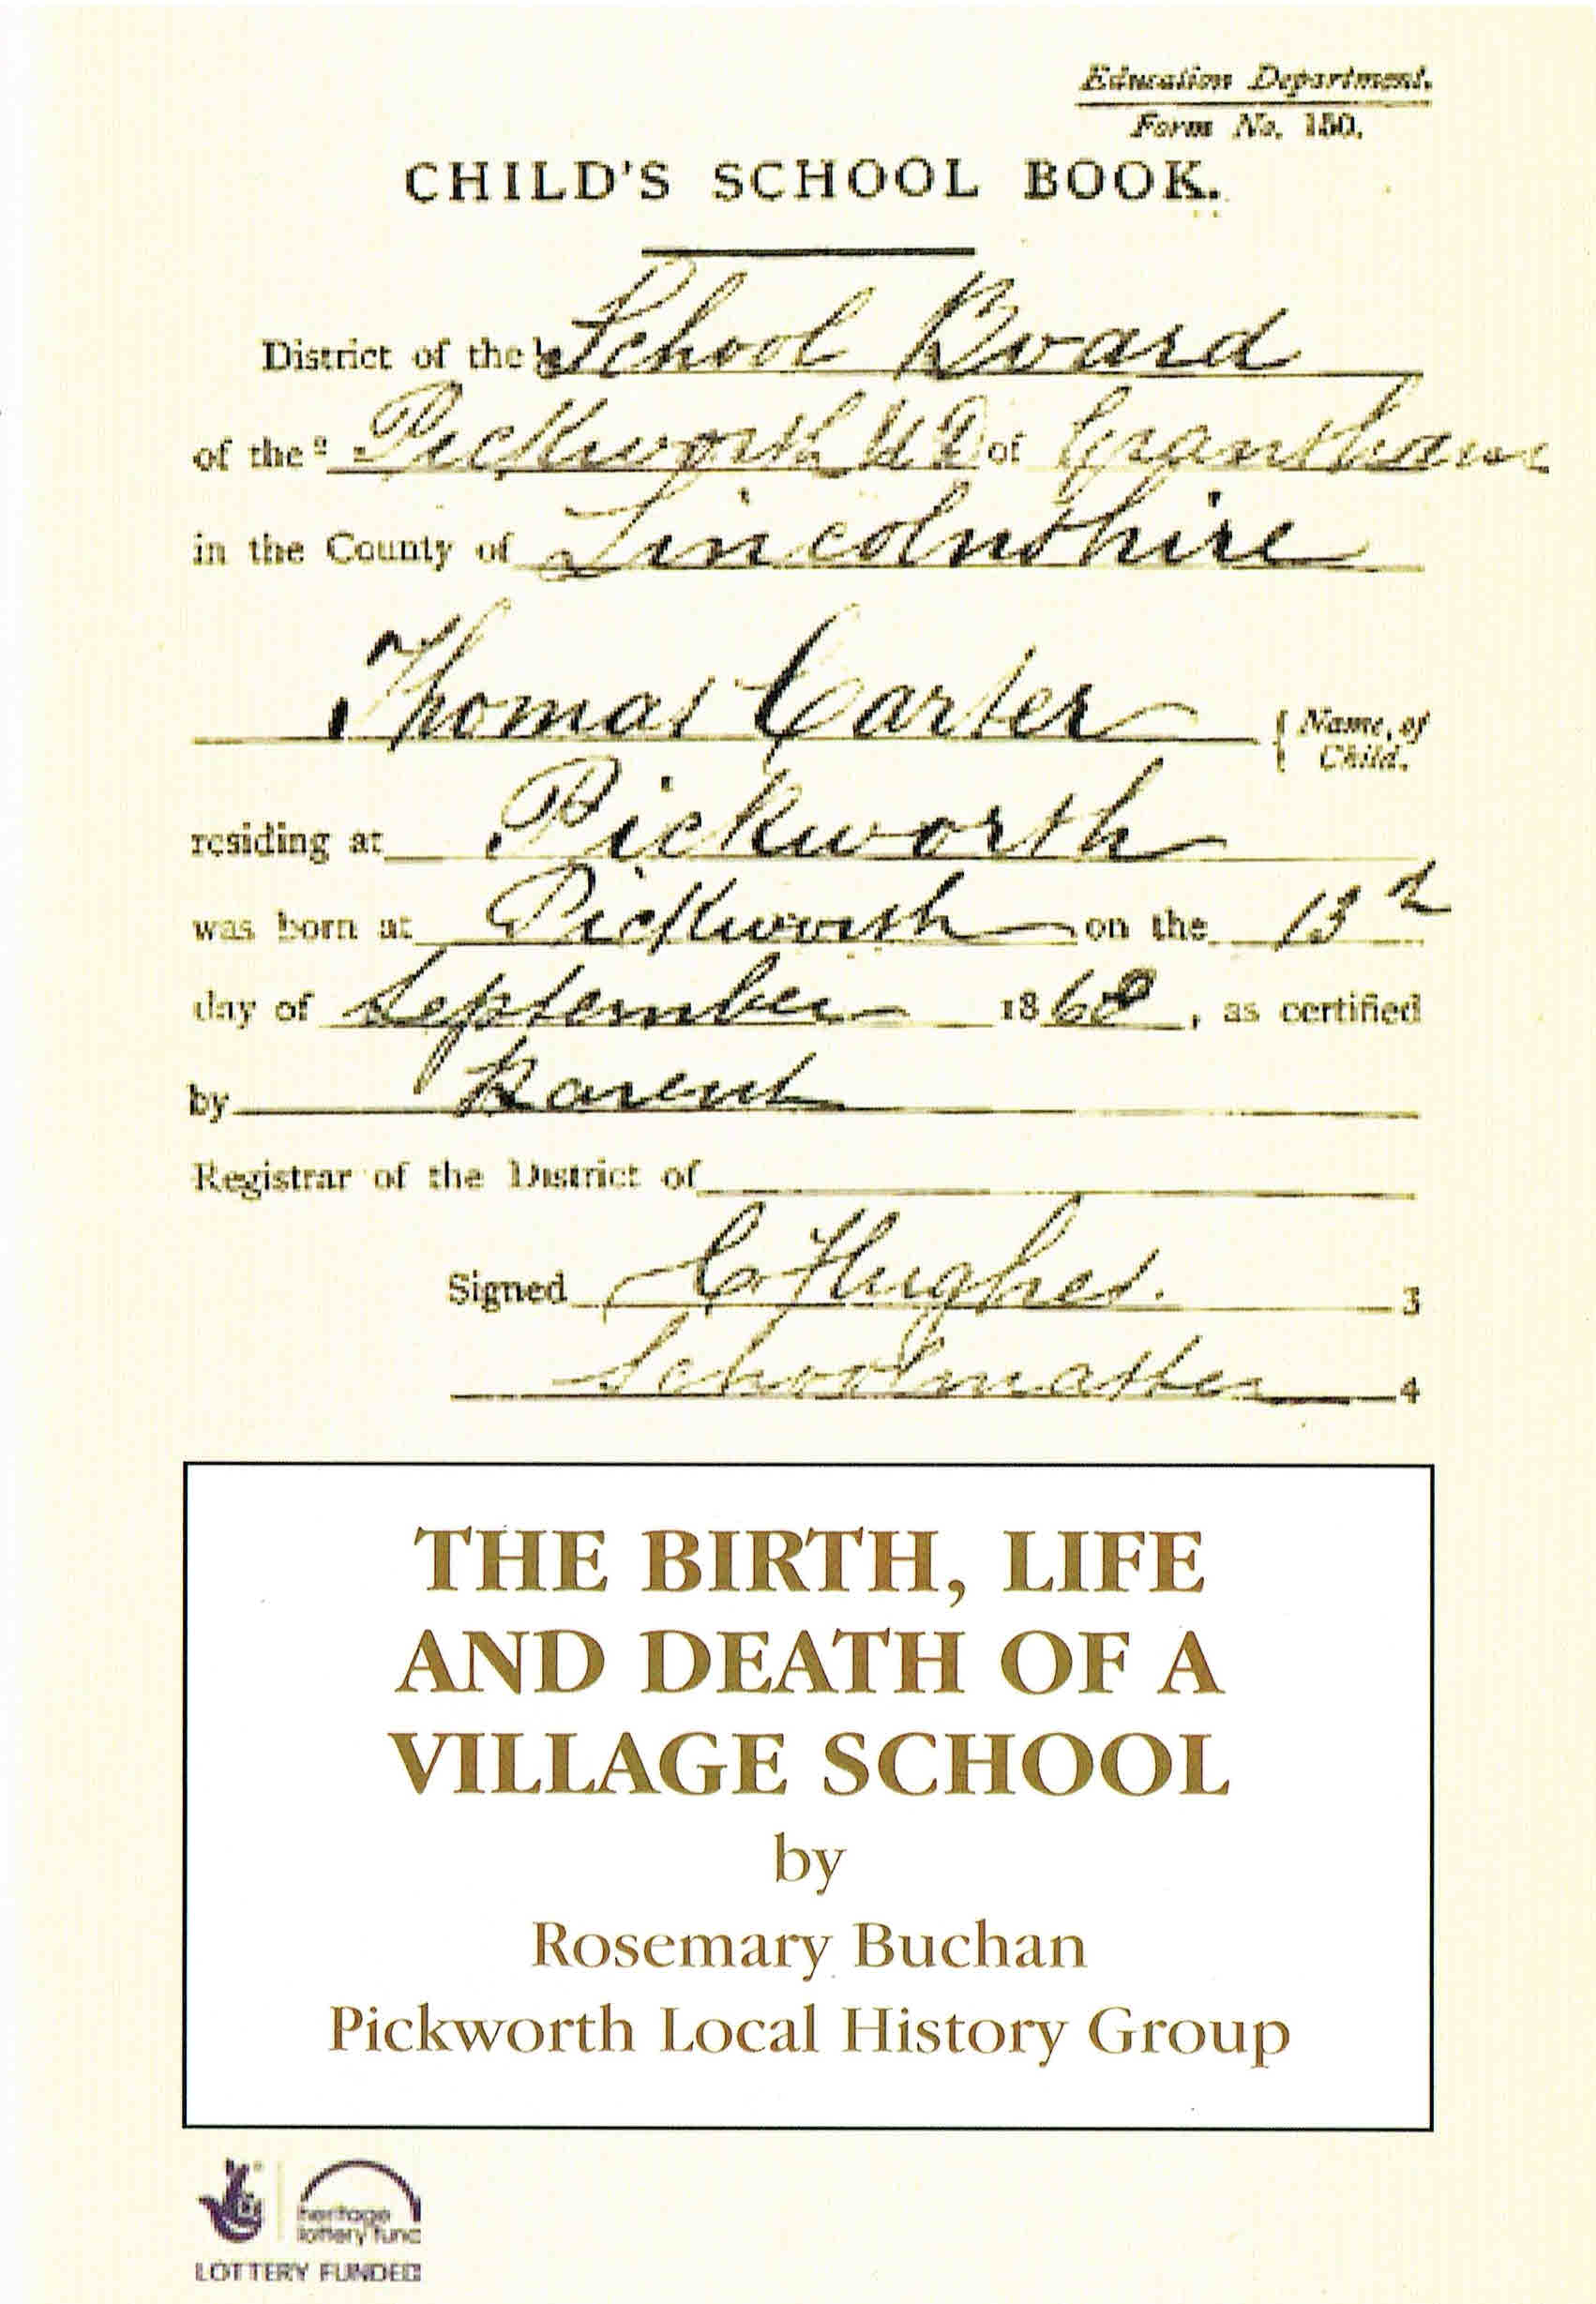 Education Department.
Form No. 150.
CHILD'S SCHOOL BOOK.
District of the School Board
of the Pickworth U D of Grantham
in the County of Lincolnshire
Thomas Carter { Name, of
Child.
residing at Pickworth
was born at Pickworth on the 13th
day of September 1868, as certified
by Parent
Registrar of the District of
Signed C Hughes. 3
Schoolmaster 4
THE BIRTH, LIFE
AND DEATH OF A
VILLAGE SCHOOL
by
Rosemary Buchan
Pickworth Local History Group
heritage
lottery fund
LOTTERY FUNDED